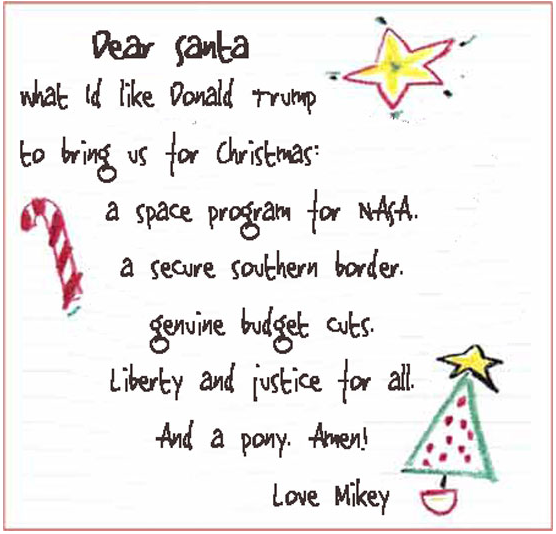 Dear santa
what Id like Donald Trump
to bring us for Christmas:
a space program for NASA.
a secure southern border.
genuine budget cuts.
Liberty and justice for all.
And a pony. Amen!
Love Mikey